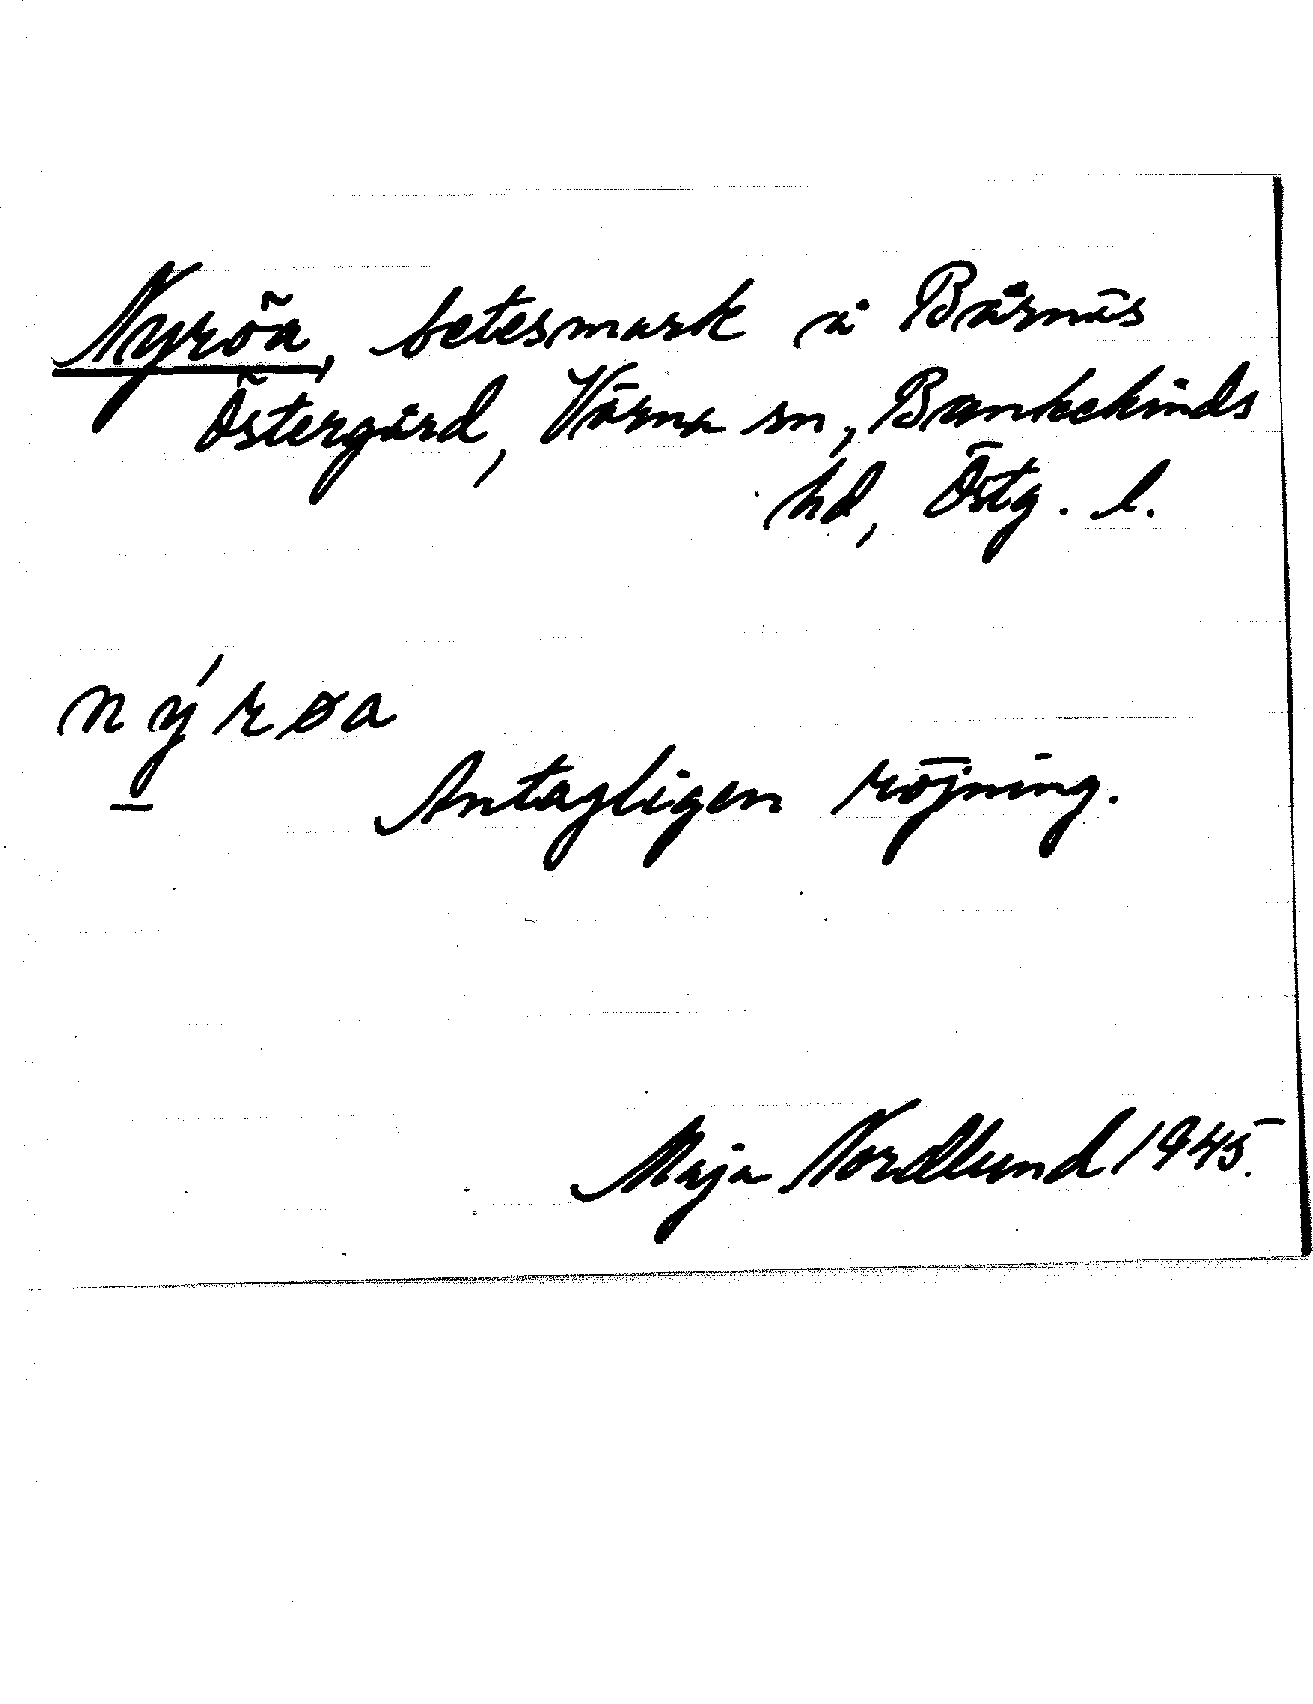 Nyröa, betesmark å Bårnäs
Östergård, Värna sn, Bankekinds
hd, Östg. l.
nýrøa
Antagligen röjning.
Maja Nordlund 1945.